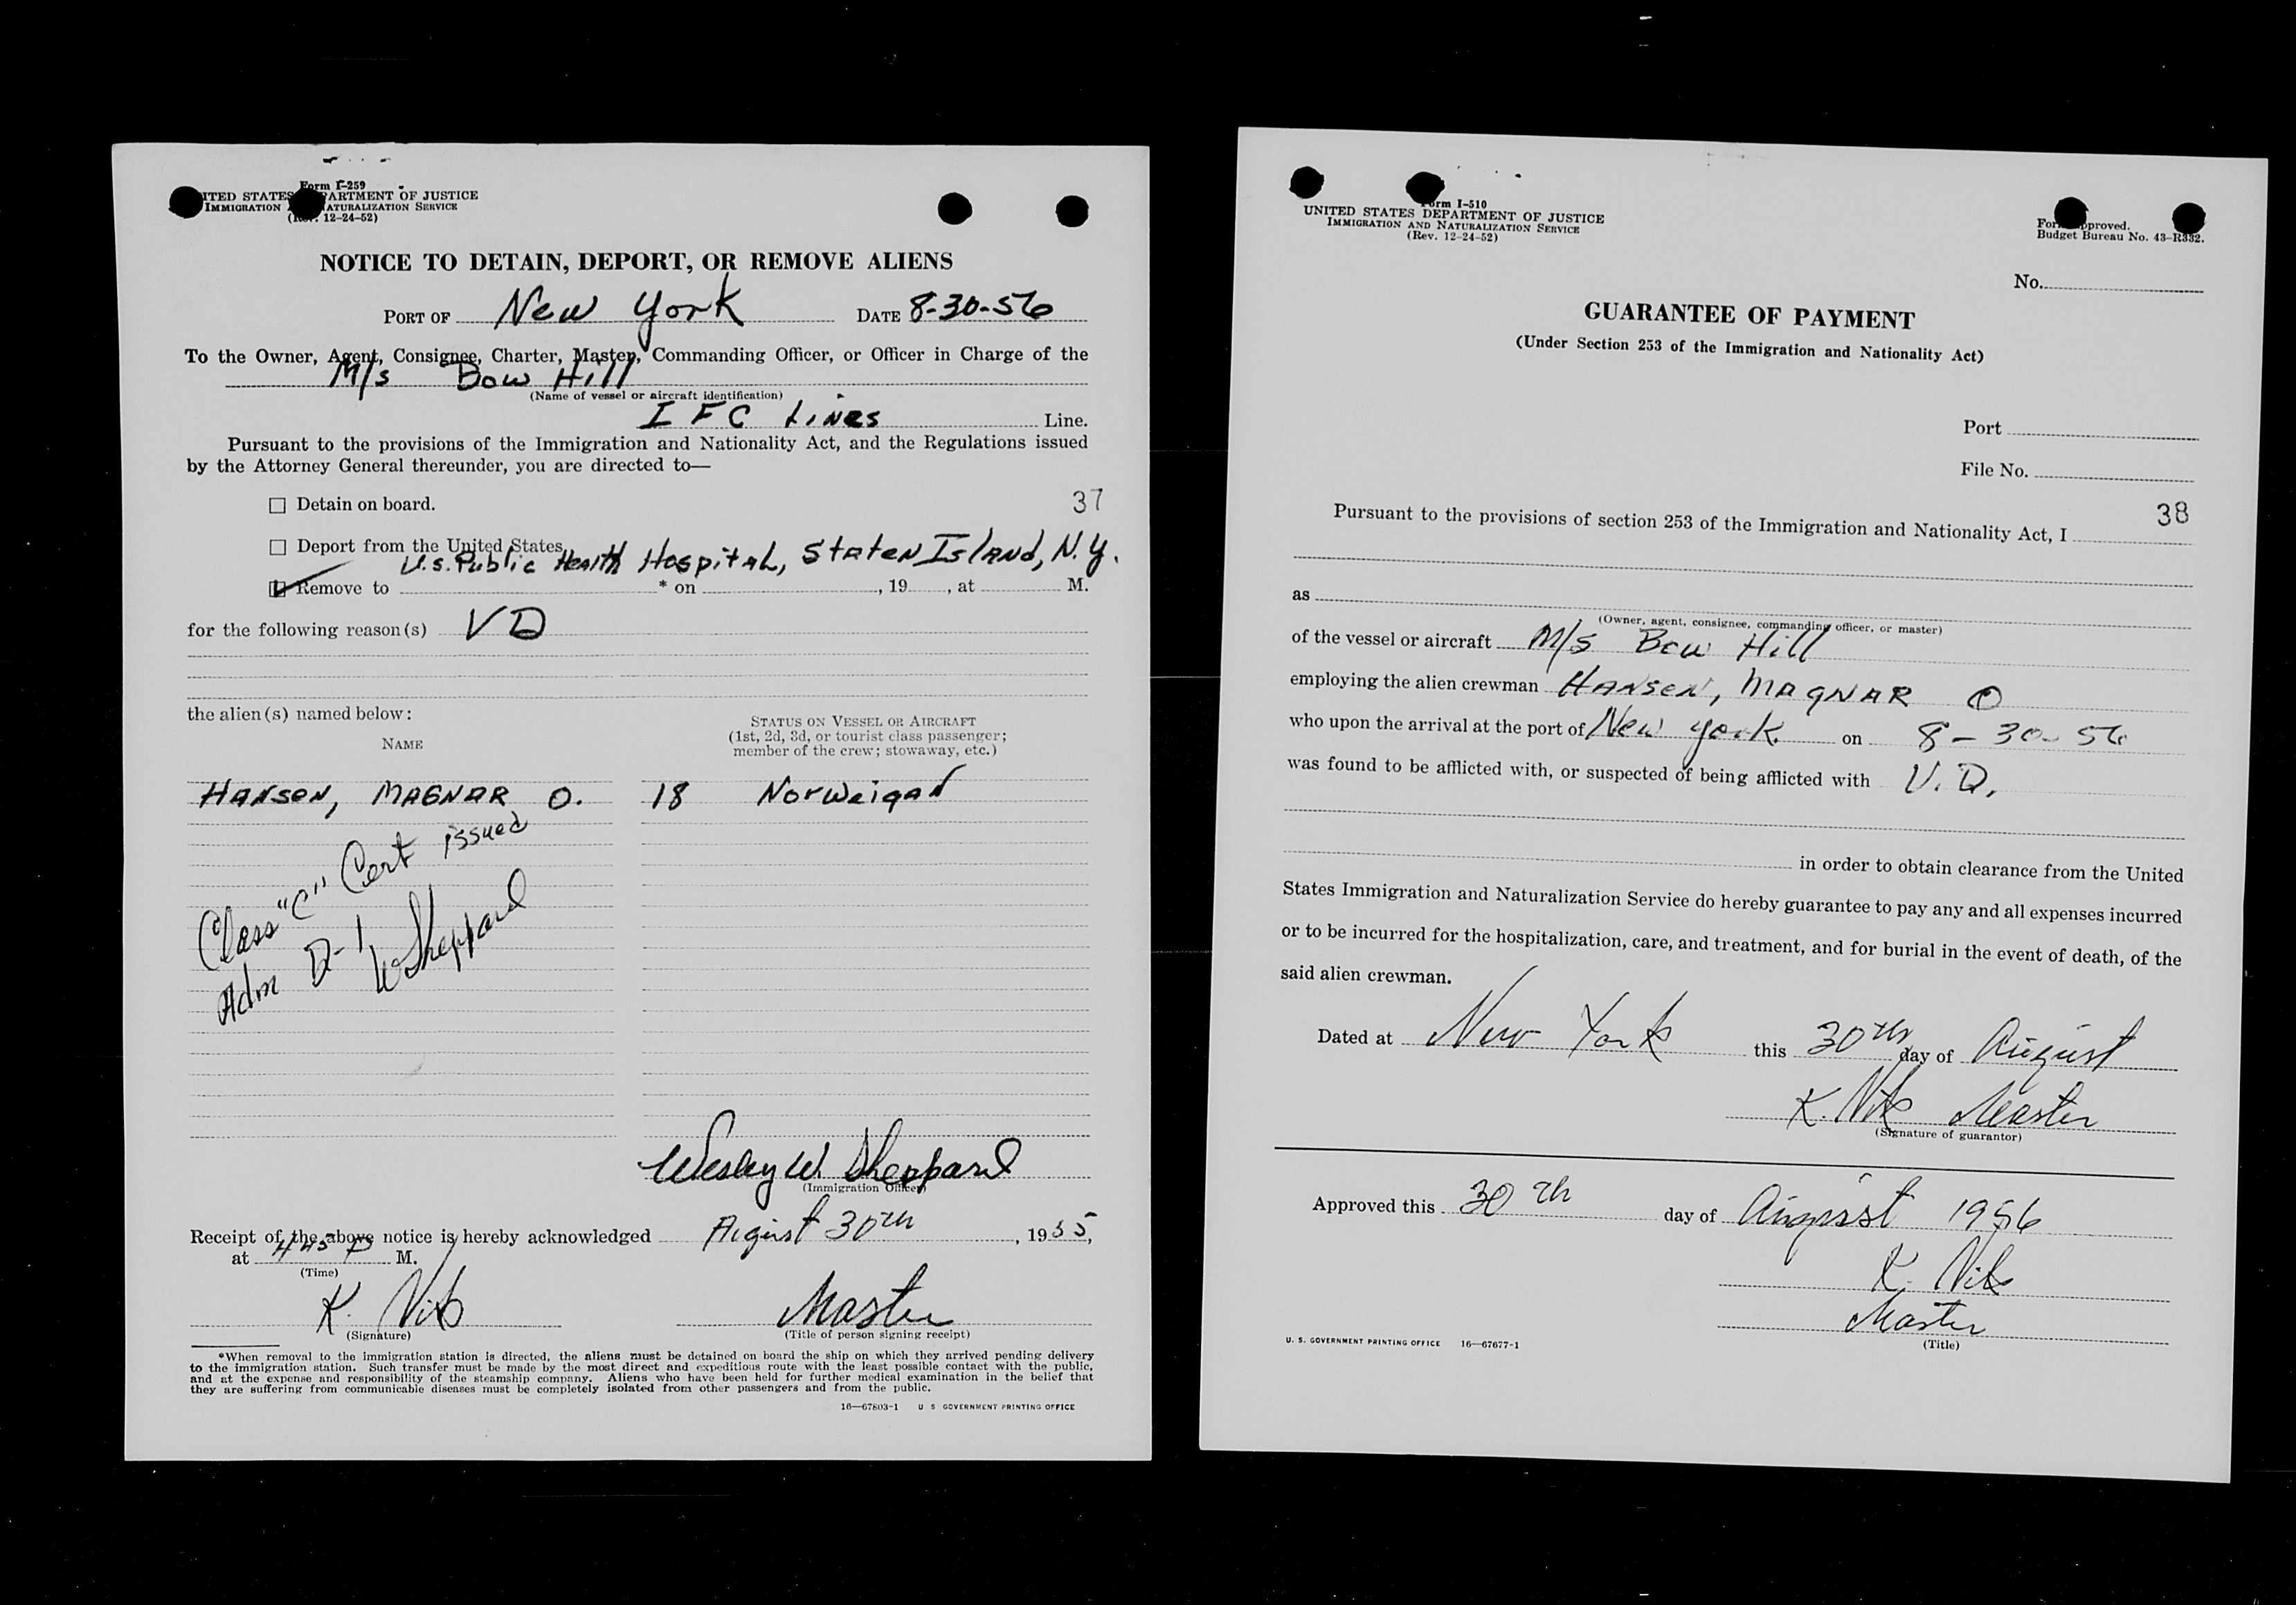 Form I-259
ITED STATES PARTMENT OF JUSTICE
IMMIGRATION ATURALIZATION SERVICE
12-24-52)
NOTICE TO DETAIN, DEPORT, OR REMOVE ALIENS
PORT OF New York DATE 8-30-56
To the Owner, Agent, Consignee, Charter, Master, Commanding Officer, or Officer in Charge of the
M/s Bow Hill
(Name of vessel or aircraft identification)
I F C Lines Line.
Pursuant to the provisions of the Immigration and Nationality Act, and the Regulations issued
by the Attorney General thereunder, you are directed to—
☐ Detain on board.
37
☐ Deport from the United States
U.S. Public Health Hospital, Staten Island, N.Y.
☑ Remove to * on , 19 , at M.
for the following reason(s) VD
the alien(s) named below:
NAME
STATUS ON VESSEL OR AIRCRAFT
(1st, 2d, 3d, or tourist class passenger;
member of the crew; stowaway, etc.)
HANSEN, MAGNAR O. 18 Norweigan
Class "C" Cert issued
Adm D-1
W Sheppard
Wesley W. Sheppard
(Immigration Officer)
Receipt of the above notice is hereby acknowledged August 30th, 1955,
at 445 P M.
(Time)
K. Master
(Signature) (Title of person signing receipt)
*When removal to the immigration station is directed, the aliens must be detained on board the ship on which they arrived pending delivery
to the immigration station. Such transfer must be made by the most direct and expeditious route with the least possible contact with the public,
and at the expense and responsibility of the steamship company. Aliens who have been held for further medical examination in the belief that
they are suffering from communicable diseases must be completely isolated from other passengers and from the public.
16—67803-1 U S GOVERNMENT PRINTING OFFICE
Form I-510
UNITED STATES DEPARTMENT OF JUSTICE
IMMIGRATION AND NATURALIZATION SERVICE
(Rev. 12-24-52)
For pproved.
Budget Bureau No. 43-R332.
No.
GUARANTEE OF PAYMENT
(Under Section 253 of the Immigration and Nationality Act)
Port
File No.
38
Pursuant to the provisions of section 253 of the Immigration and Nationality Act, I
as
(Owner, agent, consignee, commanding officer, or master)
of the vessel or aircraft M/s Bow Hill
employing the alien crewman HANSEN, MAGNAR O
who upon the arrival at the port of New York on 8-30-56
was found to be afflicted with, or suspected of being afflicted with V.D.
in order to obtain clearance from the United
States Immigration and Naturalization Service do hereby guarantee to pay any and all expenses incurred
or to be incurred for the hospitalization, care, and treatment, and for burial in the event of death, of the
said alien crewman.
Dated at New York this 30th day of August
K. Master
(Signature of guarantor)
Approved this 30th day of August 1956
K.
Master
(Title)
U. S. GOVERNMENT PRINTING OFFICE 16—67677-1